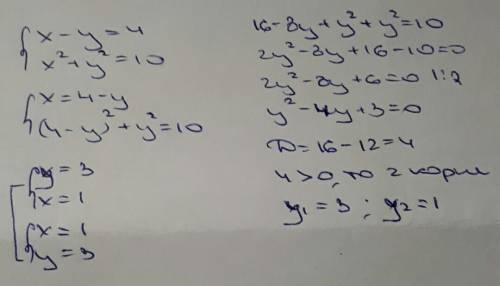 x-y=4
x²+y²=10
x=4-y
(4-y)²+y²=10
y=3
x=1
x=1
y=3
16-8y+y²+y²=10
2y²-8y+16-10=0
2y²-8y+6=0 1:2
y²-4y+3=0
D=16-12=4
4>0, то 2 корня
y₁=3; y₂=1